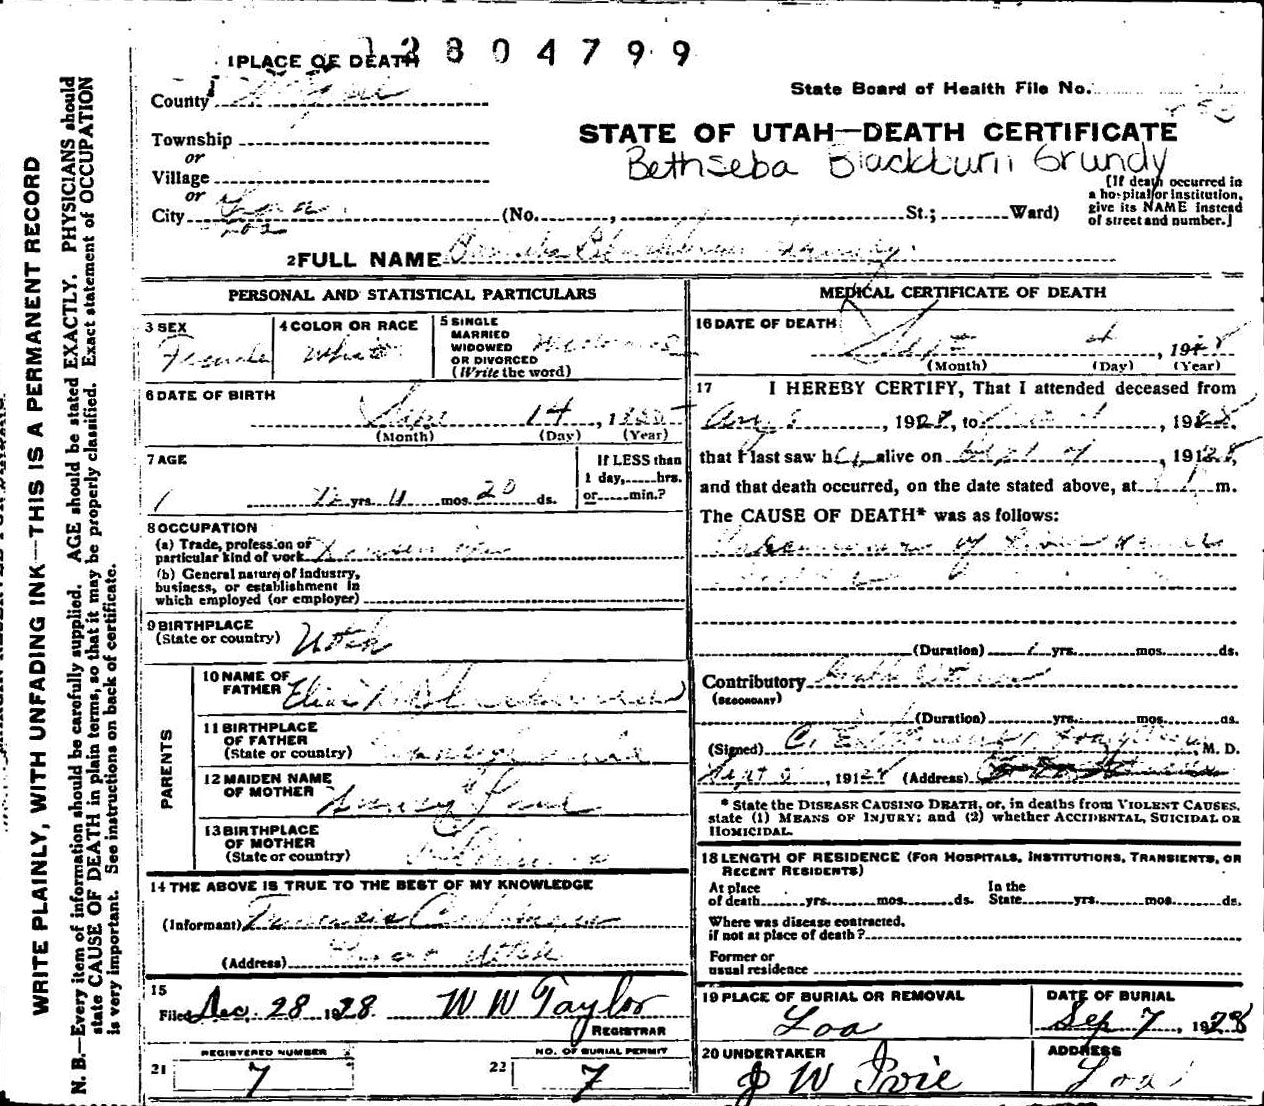 12804799
1 PLACE OF DEATH
County Wayne
State Board of Health File No.
Township
or
Village
or
City Loa (No. , St.; Ward)
Loa
STATE OF UTAH—DEATH CERTIFICATE
Bethseba Blackburn Grundy
[If death occurred in
a hospital or institution,
give its NAME instead
of street and number.]
2 FULL NAME Blackburn Grundy
PERSONAL AND STATISTICAL PARTICULARS
3 SEX
Female
4 COLOR OR RACE
White
5 SINGLE
MARRIED
WIDOWED
OR DIVORCED
(Write the word)
Widowed
6 DATE OF BIRTH
Sept 14, 1855
(Month) (Day) (Year)
7 AGE
72 yrs. 11 mos. 20 ds.
If LESS than
1 day, hrs.
or min.?
8 OCCUPATION
(a) Trade, profession or
particular kind of work Housewife
(b) General nature of industry,
business, or establishment in
which employed (or employer)
9 BIRTHPLACE
(State or country) Utah
PARENTS
10 NAME OF
FATHER Elias Blackburn
11 BIRTHPLACE
OF FATHER
(State or country)
12 MAIDEN NAME
OF MOTHER
13 BIRTHPLACE
OF MOTHER
(State or country)
14 THE ABOVE IS TRUE TO THE BEST OF MY KNOWLEDGE
(Informant)
(Address) Utah
15
Filed Dec. 28 1928. W W Taylor
REGISTRAR
REGISTERED NUMBER
21 7
NO. OF BURIAL PERMIT
22 7
MEDICAL CERTIFICATE OF DEATH
16 DATE OF DEATH
Sept 4, 1928
(Month) (Day) (Year)
17 I HEREBY CERTIFY, That I attended deceased from
Aug , 1928, to Sept 4, 1928,
that I last saw her alive on Sept 4, 1928,
and that death occurred, on the date stated above, at 1 m.
The CAUSE OF DEATH* was as follows:
of
(Duration) 1 yrs. mos. ds.
Contributory
(SECONDARY)
(Duration) yrs. mos. ds.
(Signed) C. E. , M. D.
Sept , 1928 (Address)
* State the DISEASE CAUSING DEATH, or, in deaths from VIOLENT CAUSES,
state (1) MEANS OF INJURY; and (2) whether ACCIDENTAL, SUICIDAL OR
HOMICIDAL.
18 LENGTH OF RESIDENCE (FOR HOSPITALS, INSTITUTIONS, TRANSIENTS, OR
RECENT RESIDENTS)
At place
of death yrs. mos. ds.
In the
State yrs. mos. ds.
Where was disease contracted,
if not at place of death?
Former or
usual residence
19 PLACE OF BURIAL OR REMOVAL
Loa
DATE OF BURIAL
Sep 7, 1928
20 UNDERTAKER
J W Ivie
ADDRESS
Loa
WRITE PLAINLY, WITH UNFADING INK—THIS IS A PERMANENT RECORD
N. B.—Every item of information should be carefully supplied. AGE should be stated EXACTLY. PHYSICIANS should
state CAUSE OF DEATH in plain terms, so that it may be properly classified. Exact statement of OCCUPATION
is very important. See instructions on back of certificate.